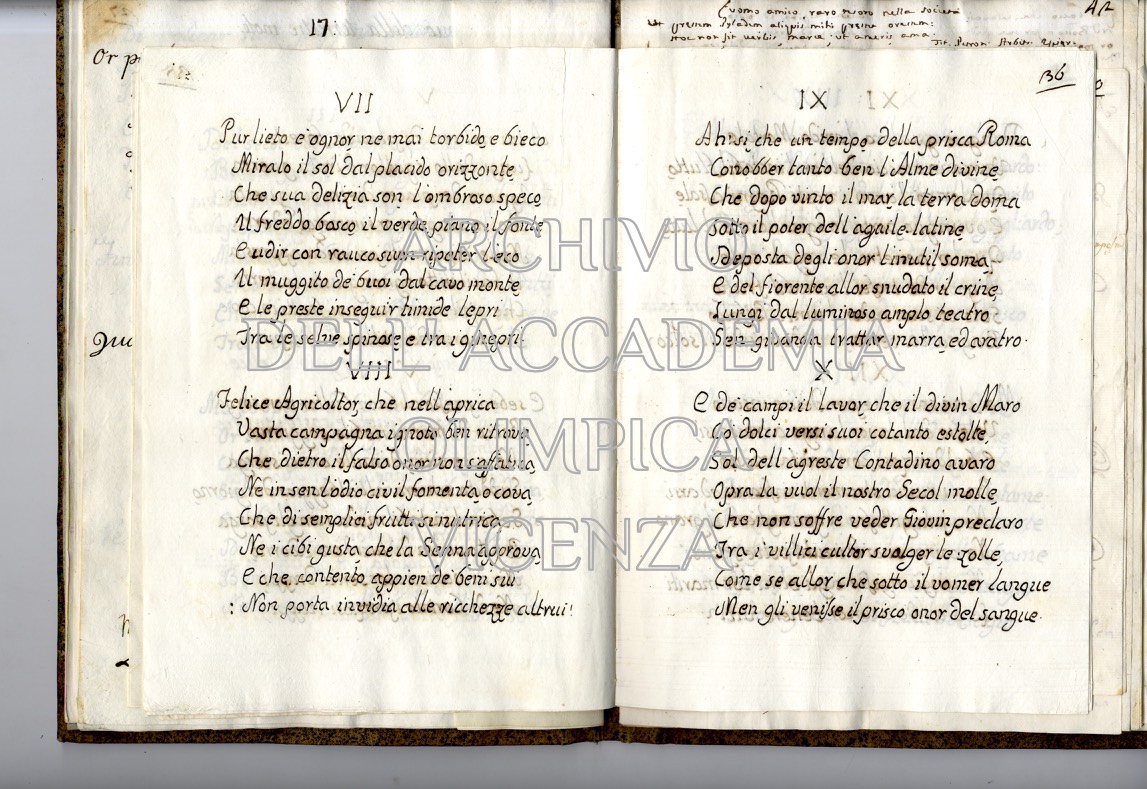 17.
Or p
Qu
L'uomo amico, raro tesoro nella società
Ut præstem Pyladem aliquis mihi præstet Orestem:
Hoc non fit verbis, Marce: ut ameris ama.
Tit. Petron. Arbit.
42
VII
Pur lieto è ognor ne mai torbido, e bieco
Miralo il sol dal placido orizzonte,
Che sua delizia son l'ombroso speco
Il freddo bosco il verde piano il fonte
E udir con rauco suon ripeter l'eco
Il muggito de buoi dal cavo monte,
E le preste inseguir timide lepri
Tra le selve spinose, e tra i ginepri.
VIII
Felice Agricoltor, che nell'aprica
Vasta campagna ignoto ben ritrova,
Che dietro il falso onor non s'affatica,
Ne in sen l'odio civil fomenta o cova,
Che di semplici frutti si nutrica
Ne i cibi gusta che la Senna approva,
E che contento appien de beni sui
: Non porta invidia alle ricchezze altrui!
36
IX
Ah si, che un tempo della prisca Roma
Conobber tanto ben l'Alme divine,
Che dopo vinto il mar, la terra doma
Sotto il poter dell'aquile latine,
Deposta degli onor l'inutil soma,
E del fiorente allor snudato il crine,
Lungi dal luminoso amplo teatro
Sen givano a trattar marra, ed aratro.
X
E de' campi il lavor, che il divin Maro
Co' dolci versi suoi cotanto estolle,
Sol dell'agreste Contadino avaro
Opra la vuol il nostro Secol molle,
Che non soffre veder Giovin preclaro
Tra i villici cultor svolger le zolle,
Come se allor che sotto il vomer langue
Men gli venisse il prisco onor del sangue.
ARCHIVIO
DELL'ACCADEMIA
OLIMPICA
VICENZA